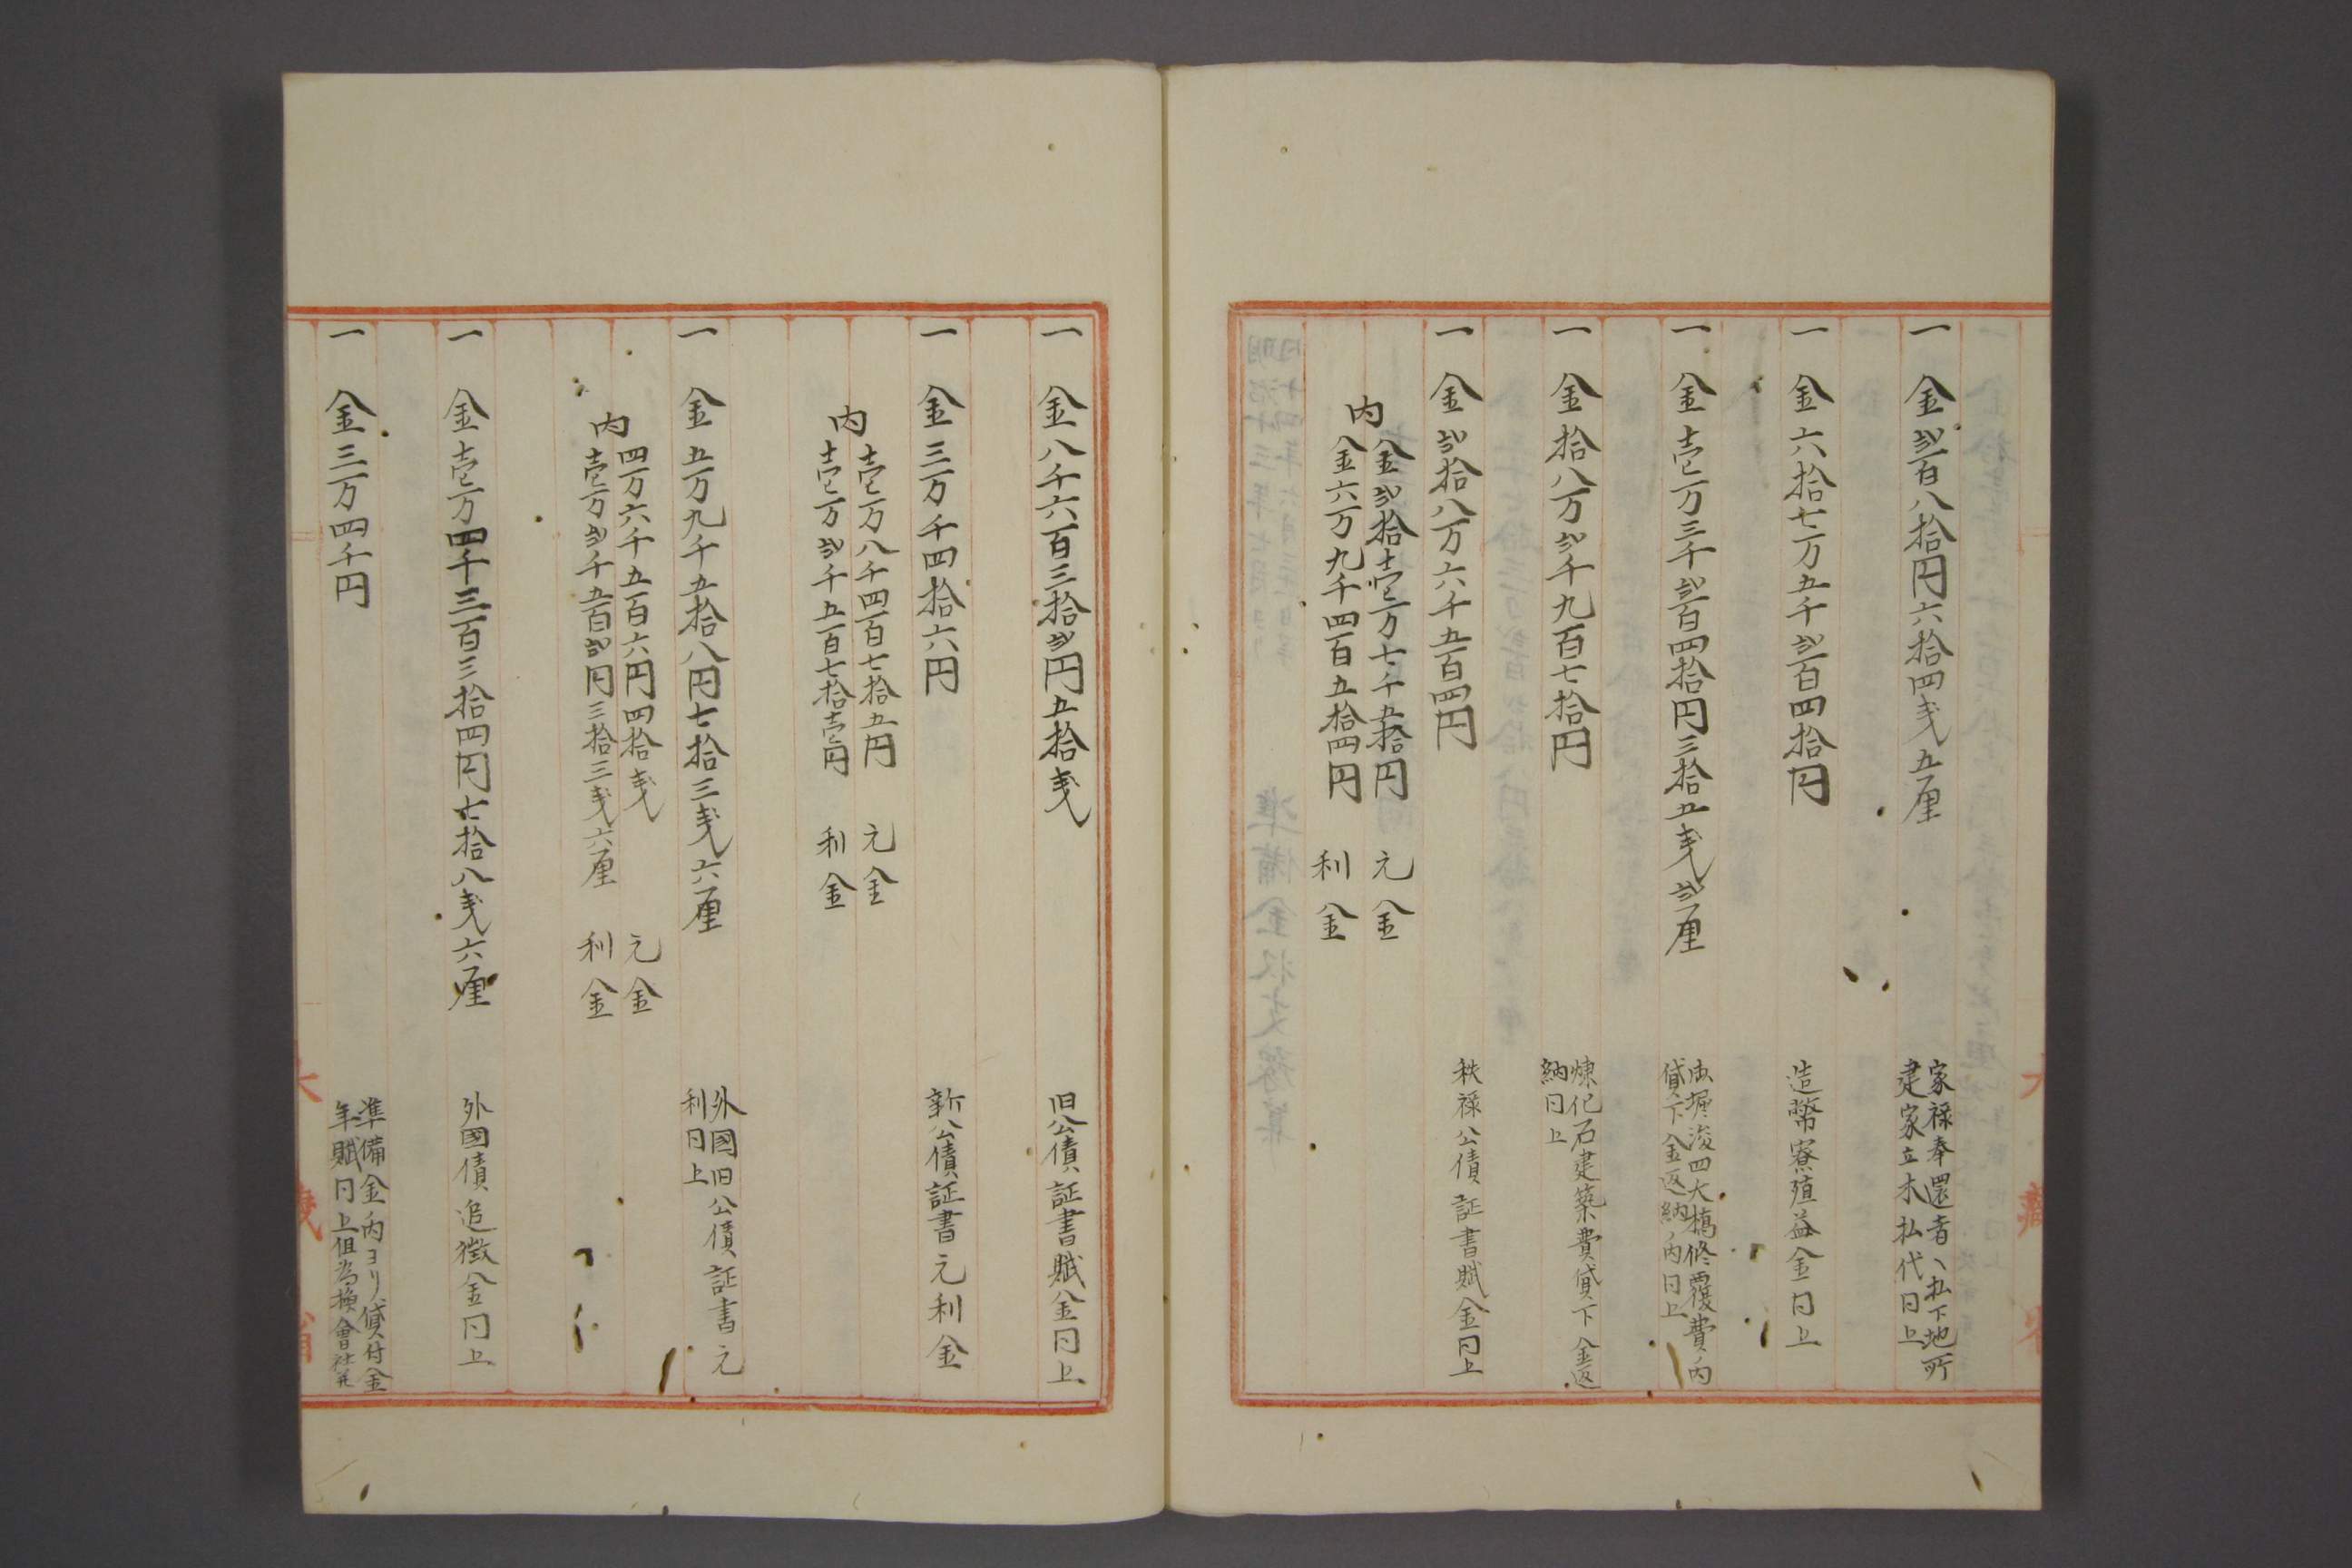 一 金弐百八拾円六拾四戋五厘
家禄奉還者ヘ払下地所
建家立木払代同上
一 金六拾七万五千弐百四拾円
造幣寮殖益金同上
一 金壱万三千弐百四拾円三拾五戋弐厘
堀浚四大橋修覆費ノ内
貸下金返納ノ内同上
一 金拾八万弐千九百七拾円
煉化石建築費貸下金返
納同上
一 金弐拾八万六千五百四円
秩禄公債証書賦金同上
内
金弐拾壱万七千五拾円 元金
金六万九千四百五拾四円 利金
一 金八千六百三拾弐円五拾戋
旧公債証書賦金同上
一 金三万千四拾六円
新公債証書元利金
内
壱万八千四百七拾五円 元金
壱万弐千五百七拾壱円 利金
一 金五万九千五拾八円七拾三戋六厘
外國旧公債証書元
利同上
内
四万六千五百六円四拾戋 元金
壱万弐千五百弐円三拾三戋六厘 利金
一 金壱万四千三百三拾四円七拾八戋六厘
外國債追徴金同上
一 金三万四千円
準備金ノ内ヨリ貸付金
年賦同上但為換會社
大藏省